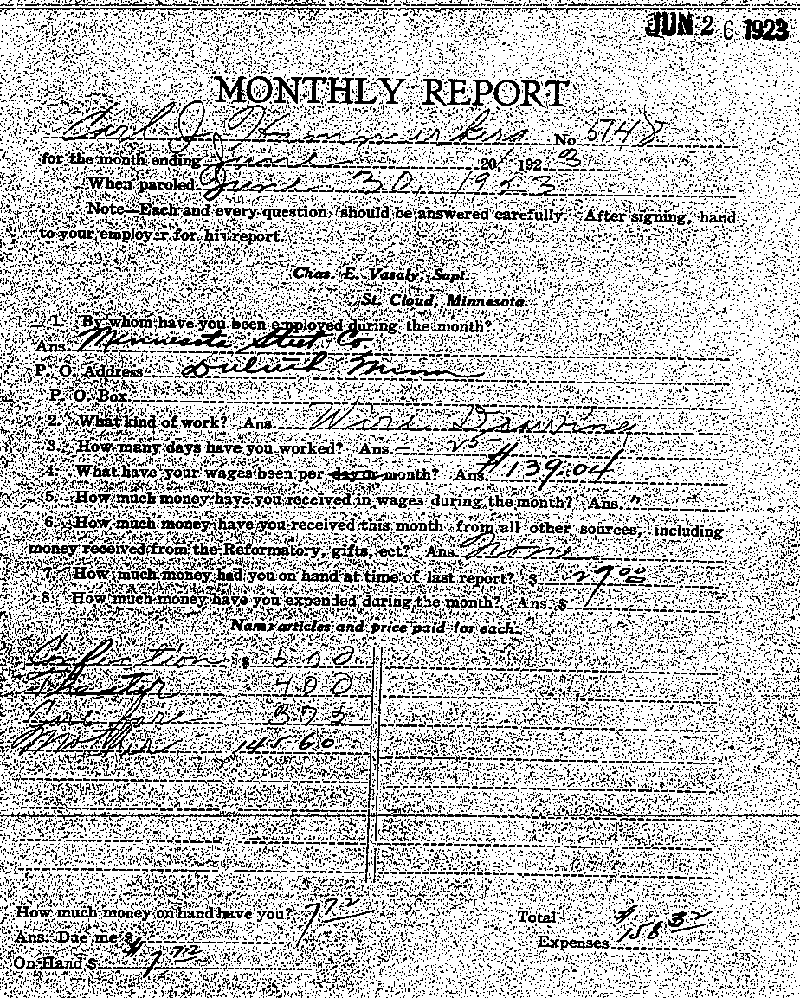 JUN 26 1923
MONTHLY REPORT
Carl J. No 5748
for the month ending June 20, 1923
When paroled June 30, 1923
Note—Each and every question should be answered carefully. After signing, hand
to your employer for his report.
Chas. E. Vasaly, Supt.
St. Cloud, Minnesota.
1. By whom have you been employed during the month?
Ans. Minnesota Steel Co.
P. O. Address Duluth Minn
P. O. Box
2. What kind of work? Ans. Wire Drawing
3. How many days have you worked? Ans.— 25
4. What have your wages been per day or month? Ans. $139.04
5. How much money have you received in wages during the month? Ans. "
6. How much money have you received this month from all other sources, including
money received from the Reformatory, gifts, ect? Ans. None
7. How much money had you on hand at time of last report? $ 27.00
8. How much money have you expended during the month? Ans. $
Name articles and price paid for each.
$ 5 00
Theater 4 00
Car fare 3 73
Mother 145 60
How much money on hand have you? 7 72
Ans. Due me $
On Hand $ 7 72
Total
Expenses $158 32